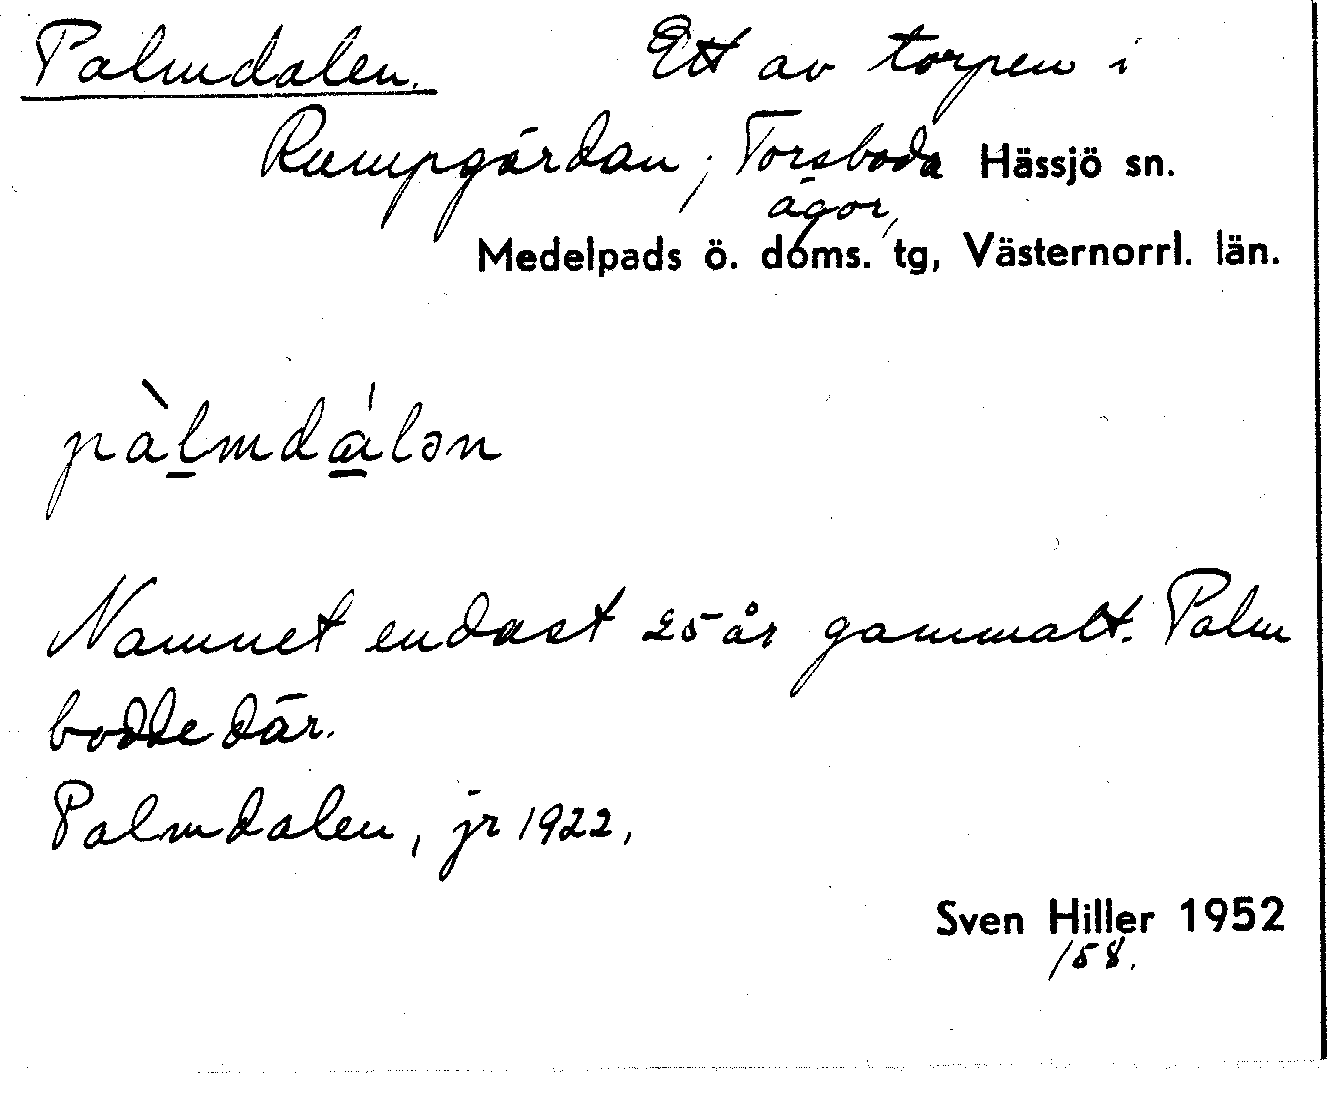 Palmdalen. Ett av torpen i
Rumpgärdan, Torsboda Hässjö sn.
ägor,
Medelpads ö. doms. tg, Västernorrl. län.
pàlmdálən
Namnet endast 25 år gammalt. Palm
bodde där.
Palmdalen, jr 1922,
Sven Hiller 1952
158.